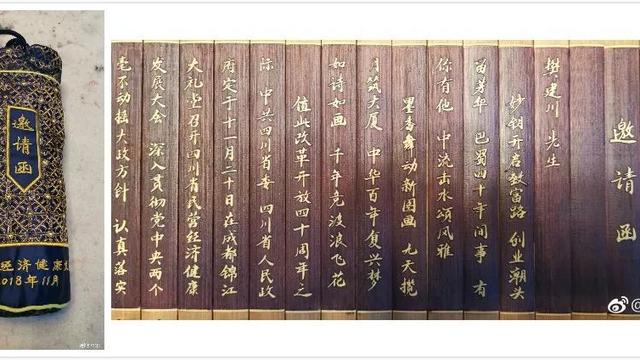 邀请函
经济健康
2018年11月
邀请函
樊建川 先生
妙钥开启致富路 创业潮头
留芳华 巴蜀四十年间事 有
你有他 中流击水颂风雅
墨香舞动新图画 九天揽
月筑大厦 中华百年复兴梦
如诗如画 千年竞渡浪飞花
值此改革开放四十周年之
际 中共四川省委 四川省人民政
府定于十一月二十日在成都锦江
大礼堂召开四川省民营经济健康
发展大会 深入贯彻党中央两个
毫不动摇大政方针 认真落实